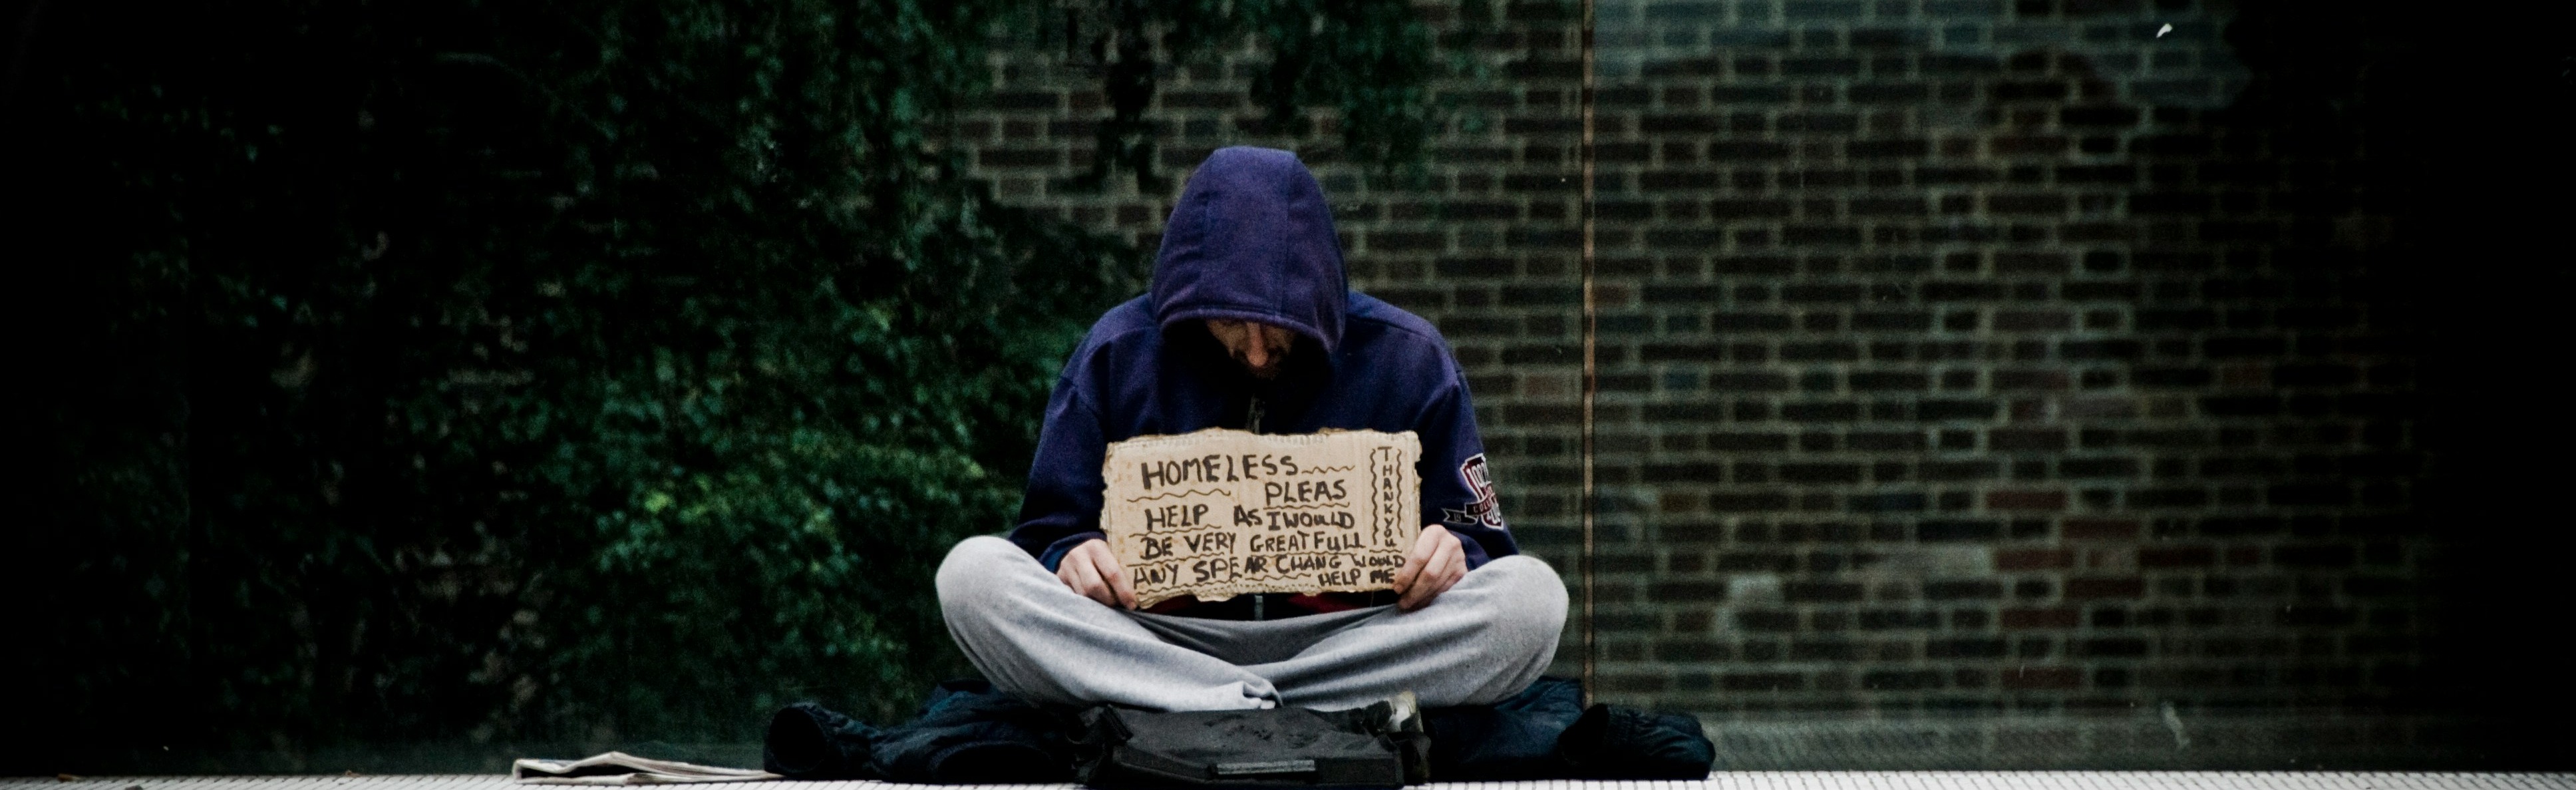 HOMELESS
PLEAS
HELP AS I WOULD
BE VERY GREATFULL
ANY SPEAR CHANG WOULD
HELP ME
THANK YOU